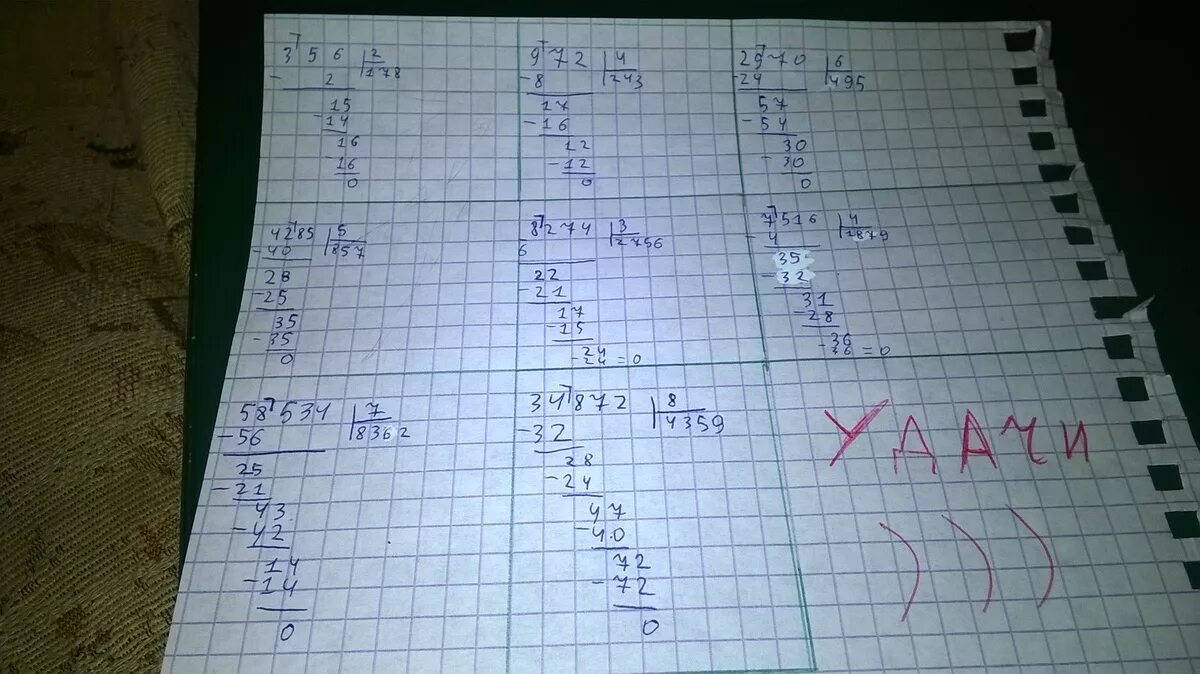 3 5 6 2
- 2 178
15
- 14
16
- 16
0
9 7 2 4
- 8 243
17
- 16
12
- 12
0
2970 6
- 24 495
57
- 54
30
- 30
0
4285 5
- 40 857
28
- 25
35
- 35
0
8274 3
6 2756
22
- 21
17
- 15
24
- 24 = 0
7516 4
- 4 1879
35
- 32
31
- 28
36
- 36 = 0
58534 7
- 56 8362
25
- 21
43
- 42
14
- 14
0
34872 8
- 32 4359
28
- 24
47
- 40
72
- 72
0
УДАЧИ
)))